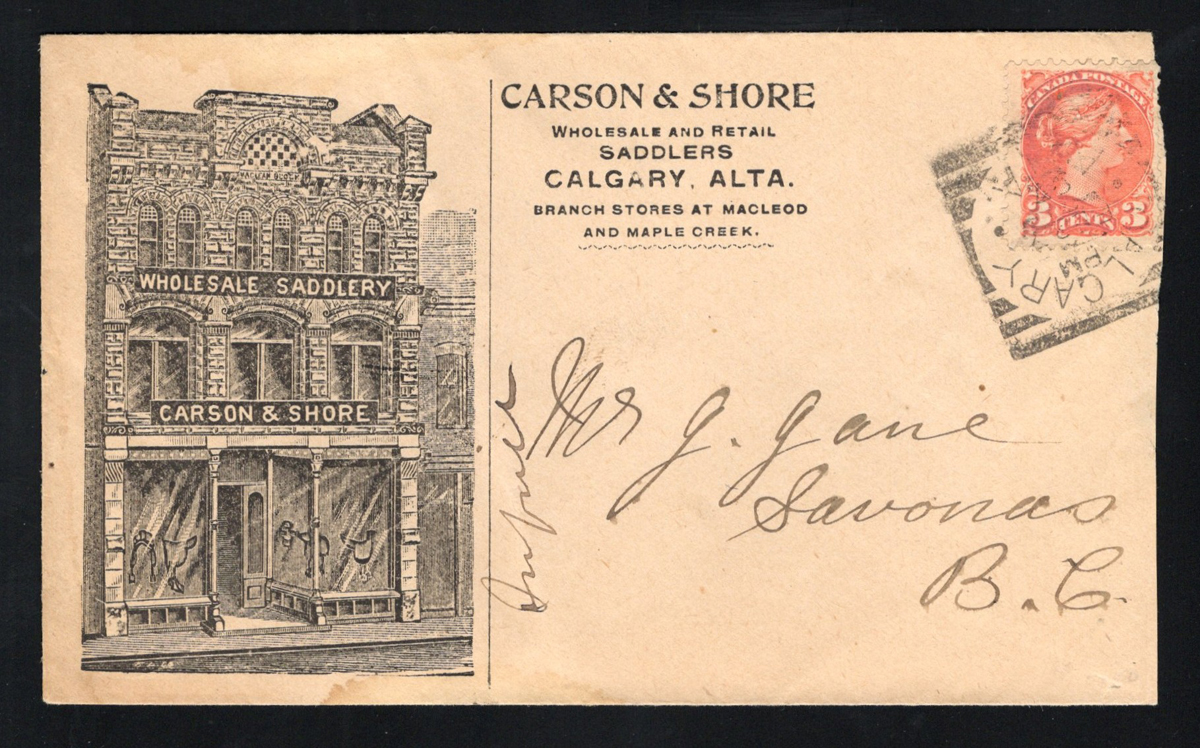 CARSON & SHORE
WHOLESALE AND RETAIL
SADDLERS
CALGARY, ALTA.
BRANCH STORES AT MACLEOD
AND MAPLE CREEK.
CANADA POSTAGE
3 CENTS 3
CALGARY
PM
BLOCK
WHOLESALE SADDLERY
CARSON & SHORE
Mr J. Jane
Savonas
B.C.